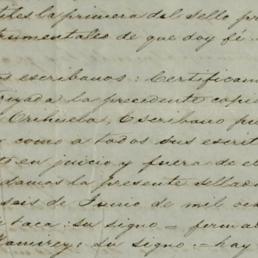 tiles la primera del sello pri
trumentales de que doy fé
os escribanos: Certificam
rizada la precedente copia
Orihuela, Escribano pu
y como a todos sus escrit
to en juicio y fuera de el
damos la presente sellada
seis de Junio de mil oc
taca: su signo = firma
Ramirez: su signo = hay